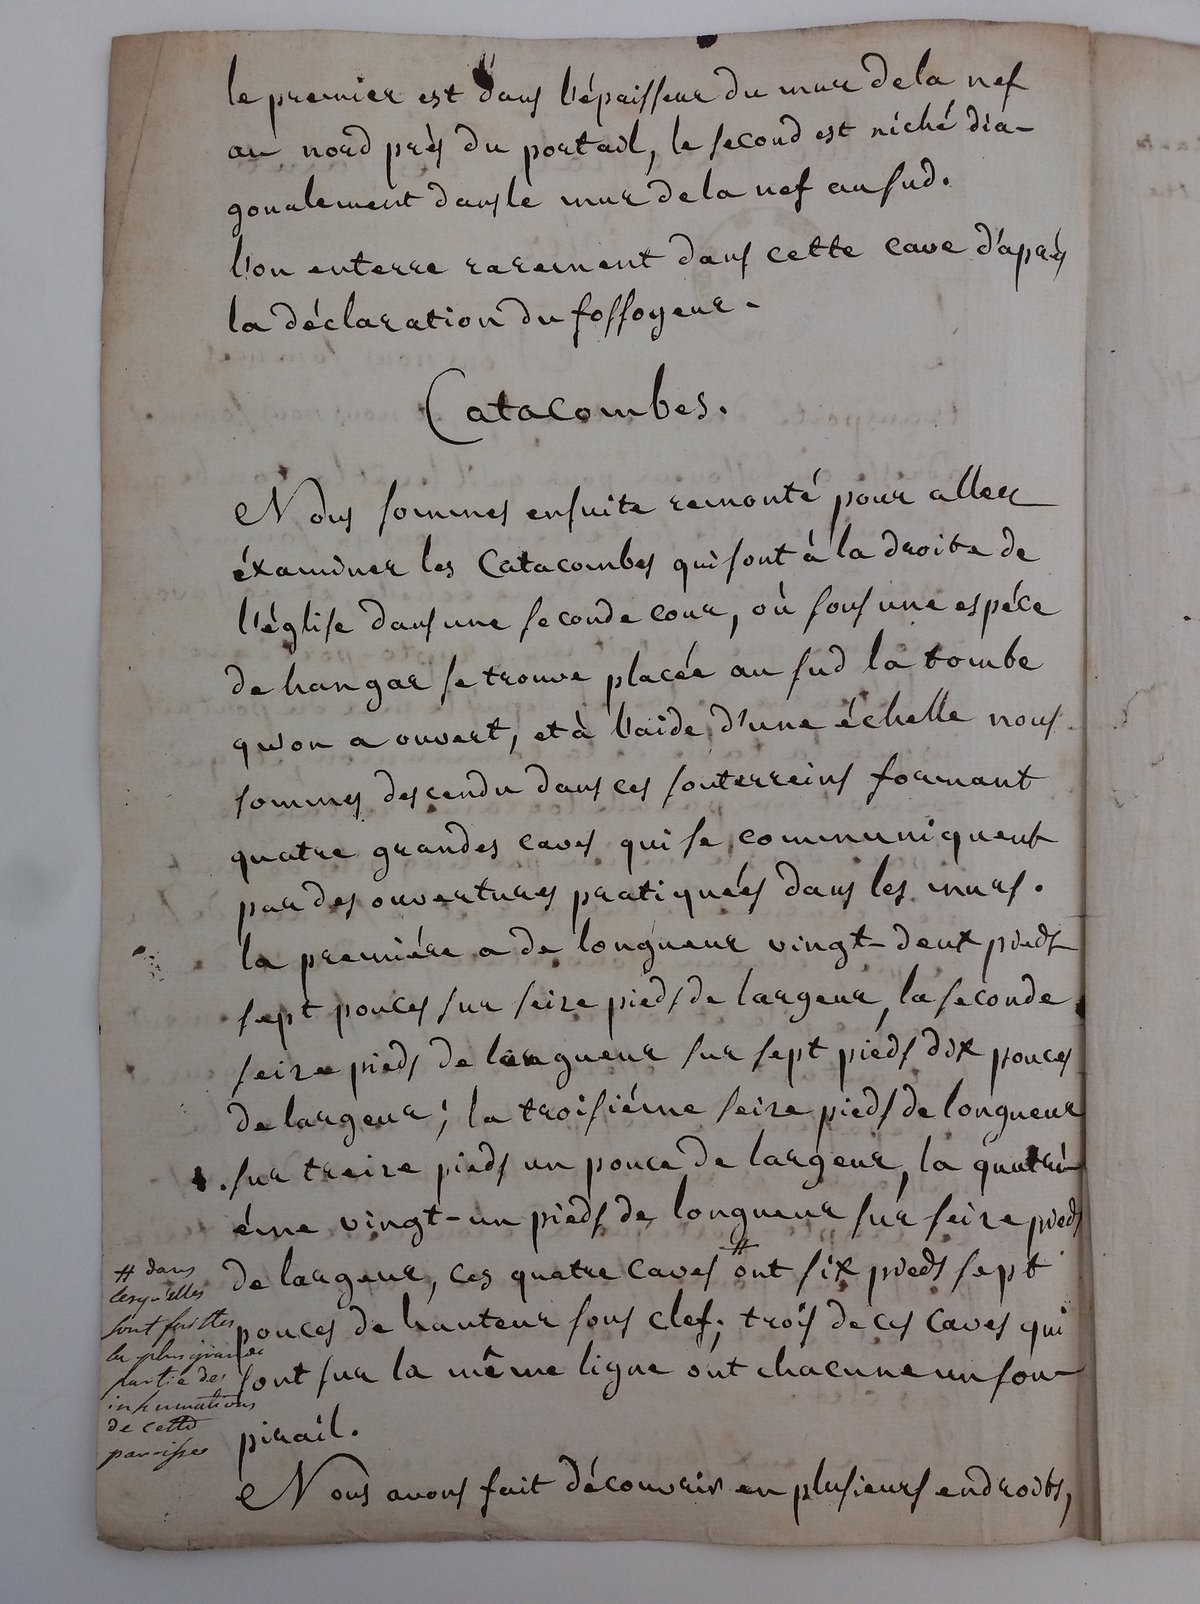 le premier est dans l'épaisseur du mur de la nef
au nord près du portail, le second est niché dia-
gonalement dans le mur de la nef au sud.
l'on enterre rarement dans cette cave d'après
la déclaration du fossoyeur.
Catacombes.
Nous sommes ensuite remonté pour aller
éxaminer les Catacombes qui sont à la droite de
l'église dans une seconde cour, où sous une espéce
de hangar se trouve placée au sud la tombe
qu'on a ouvert, et à l'aide d'une échelle nous
sommes descendu dans ces souterreins formant
quatre grandes caves qui se communiquent
par des ouvertures pratiquées dans les murs.
la premiére a de longueur vingt-deux pieds
sept pouces sur seize pieds de largeur, la seconde
seize pieds de longueur sur sept pieds dix pouces
de largeur; la troisiéme seize pieds de longueur
sur treize pieds un pouce de largeur, la quatri-
éme vingt-un pieds de longueur sur seize pieds
de largeur, ces quatre caves # ont six pieds sept
pouces de hauteur sous clef; trois de ces caves qui
sont sur la même ligne ont chacune un sou-
pirail.
Nous avons fait découvrir en plusieurs endroits,
# dans
lesqu'elles
sont faittes
la plus grande
partie des
inhumations
de cette
paroisse